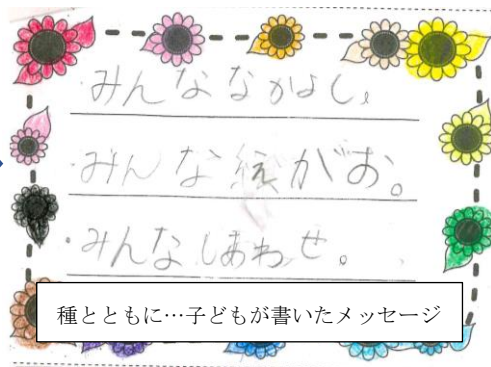 ・みんななかよし。
・みんな絵がお。
・みんなしあわせ。
種とともに…子どもが書いたメッセージ